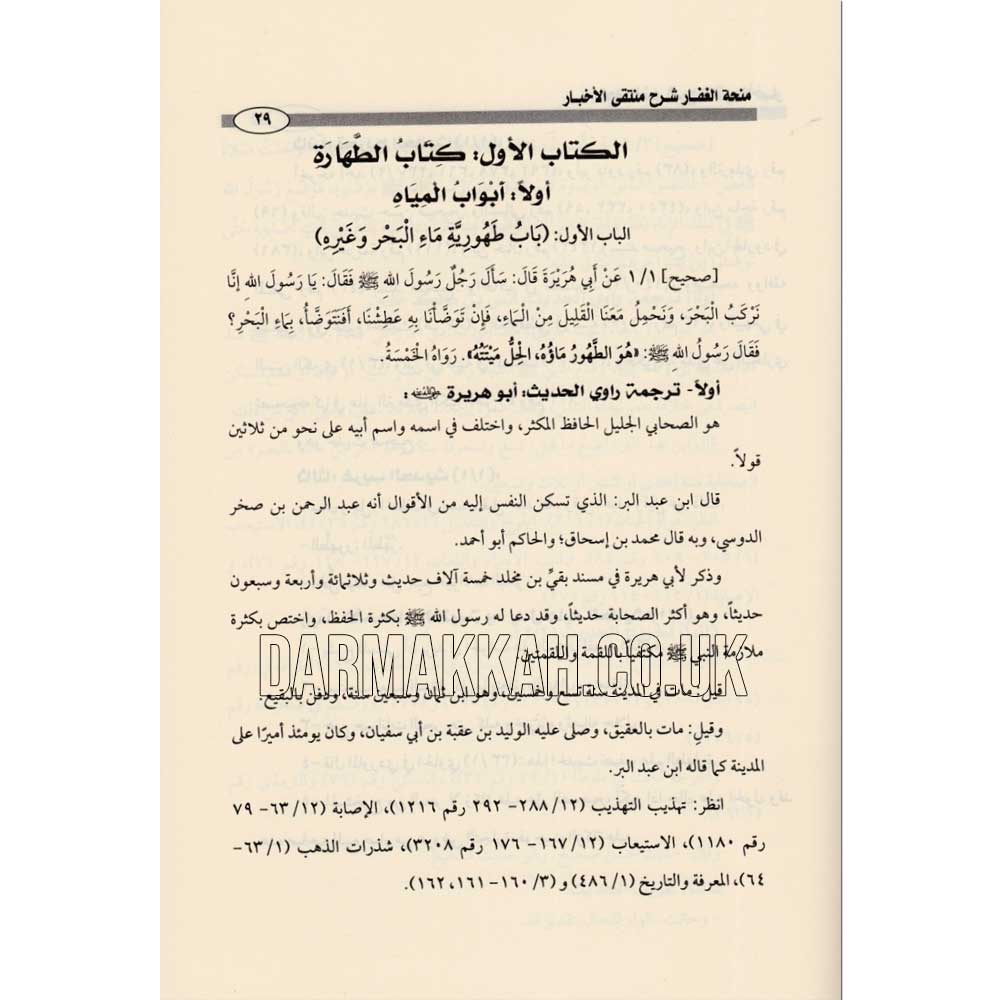 منحة الغفار شرح منتقى الأخبار
٢٩
الكتاب الأول: كِتَابُ الطَّهَارَةِ
أولاً: أَبْوَابُ الْمِيَاهِ
الباب الأول: (بَابُ طَهُورِيَّةِ مَاءِ الْبَحْرِ وَغَيْرِهِ)
[صحيح] ١/١ عَنْ أَبِي هُرَيْرَةَ قَالَ: سَأَلَ رَجُلٌ رَسُولَ اللهِ ﷺ فَقَالَ: يَا رَسُولَ اللهِ إِنَّا
نَرْكَبُ الْبَحْرَ، وَنَحْمِلُ مَعَنَا الْقَلِيلَ مِنْ الْمَاءِ، فَإِنْ تَوَضَّأْنَا بِهِ عَطِشْنَا، أَفَنَتَوَضَّأُ، بِمَاءِ الْبَحْرِ؟
فَقَالَ رَسُولُ اللهِ ﷺ: «هُوَ الطَّهُورُ مَاؤُهُ، الْحِلُّ مَيْتَتُهُ». رَوَاهُ الْخَمْسَةُ.
أولاً- ترجمة راوي الحديث: أبو هريرة رضي الله عنه:
هو الصحابي الجليل الحافظ المكثر، واختلف في اسمه واسم أبيه على نحو من ثلاثين
قولاً.
قال ابن عبد البر: الذي تسكن النفس إليه من الأقوال أنه عبد الرحمن بن صخر
الدوسي، وبه قال محمد بن إسحاق؛ والحاكم أبو أحمد.
وذكر لأبي هريرة في مسند بقيِّ بن مخلد خمسة آلاف حديث وثلاثمائة وأربعة وسبعون
حديثاً، وهو أكثر الصحابة حديثاً، وقد دعا له رسول الله ﷺ بكثرة الحفظ، واختص بكثرة
ملازمة النبي ﷺ مكتفياً باللقمة واللقمتين.
DARMAKKAH.CO.UK
قيل: مات في المدينة سنة تسع وخمسين، وهو ابن ثمان وسبعين سنة، ودفن بالبقيع.
وقيل: مات بالعقيق، وصلى عليه الوليد بن عقبة بن أبي سفيان، وكان يومئذ أميرًا على
المدينة كما قاله ابن عبد البر.
انظر: تهذيب التهذيب (١٢/ ٢٨٨- ٢٩٢ رقم ١٢١٦)، الإصابة (١٢/ ٦٣- ٧٩
رقم ١١٨٠)، الاستيعاب (١٢/ ١٦٧- ١٧٦ رقم ٣٢٠٨)، شذرات الذهب (١/ ٦٣-
٦٤)، المعرفة والتاريخ (١/ ٤٨٦) و (٣/ ١٦٠- ١٦١، ١٦٢).